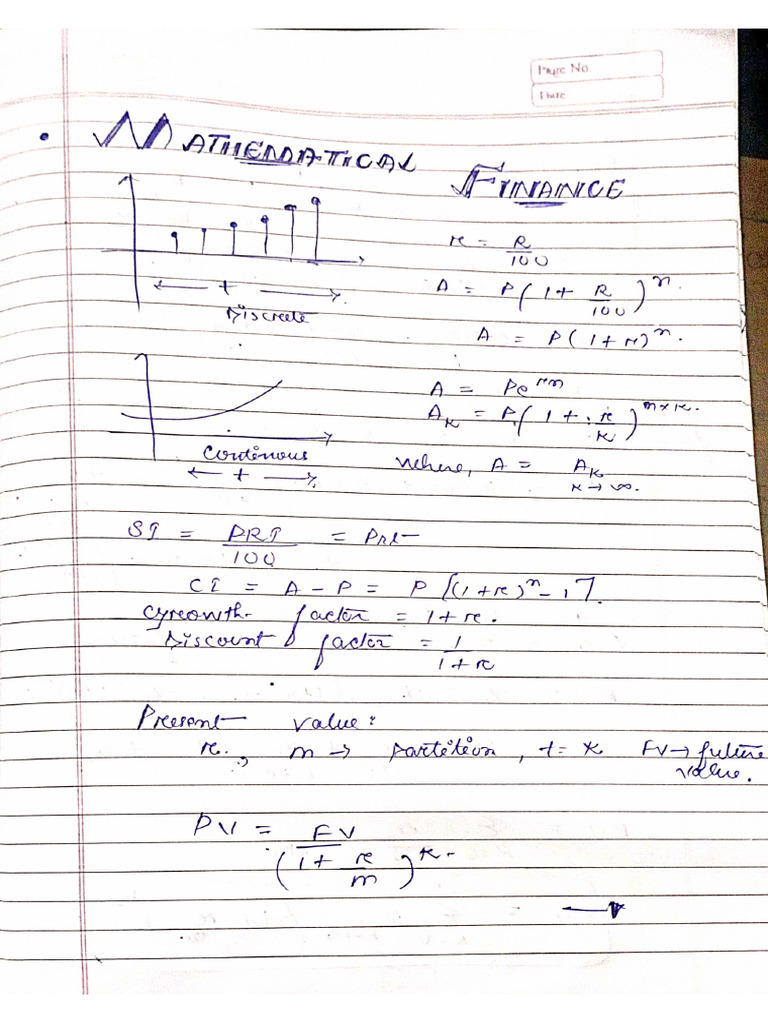 Page No.
Date
• MATHEMATICAL FINANCE
r = R/100
A = P(1 + R/100)^n.
← t →
Discrete
A = P(1+r)^n.
A = Pe^rn
A_k = P.(1 + r/k)^n×k.
Continous
← t →
where, A = A_k
k → ∞.
SI = PRT/100 = Prt
CI = A - P = P[(1+r)^n - 1].
Growth factor = 1+r.
Discount factor = 1/1+r
Present value:
r., m → partition, t = k FV → future value.
PV = FV/(1 + r/m)^k.
→